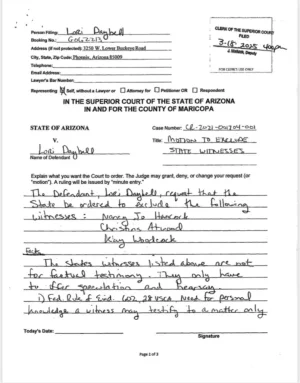 Person Filing: Lori Daybell
Booking No.:
Address (if not protected): 3250 W. Lower Buckeye Road
City, State, Zip Code: Phoenix, Arizona 85009
Telephone:
Email Address:
Lawyer's Bar Number:
CLERK OF THE SUPERIOR COURT
FILED
3-18-2025
FOR CLERK'S USE ONLY
Representing Self, without a Lawyer or Attorney for Petitioner OR Respondent
IN THE SUPERIOR COURT OF THE STATE OF ARIZONA
IN AND FOR THE COUNTY OF MARICOPA
STATE OF ARIZONA
Case Number: CR-2021-001704-001
V.
Title: MOTION TO EXCLUDE
STATE WITNESSES
Lori Daybell
Name of Defendant
Explain what you want the Court to order. The Judge may grant, deny, or change your request (or
"motion"). A ruling will be issued by "minute entry."
The Defendant, Lori Daybell, request that the
State be ordered to exclude the following
witnesses: Nancy Jo Hancock
Christina Atwood
Kay Woodcock
Facts
The States witnesses listed above are not
for factual testimony. They only have
to offer speculation and hearsay.
1) Fed. Rule of Evid. 602, 28 USCA Need for personal
knowledge a witness may testify to a matter only
Today's Date:
Signature
Page 1 of 2